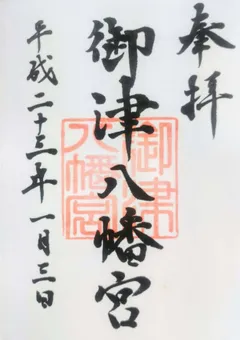 奉拝
御津八幡宮
御津
八幡宮
平成二十三年一月三日